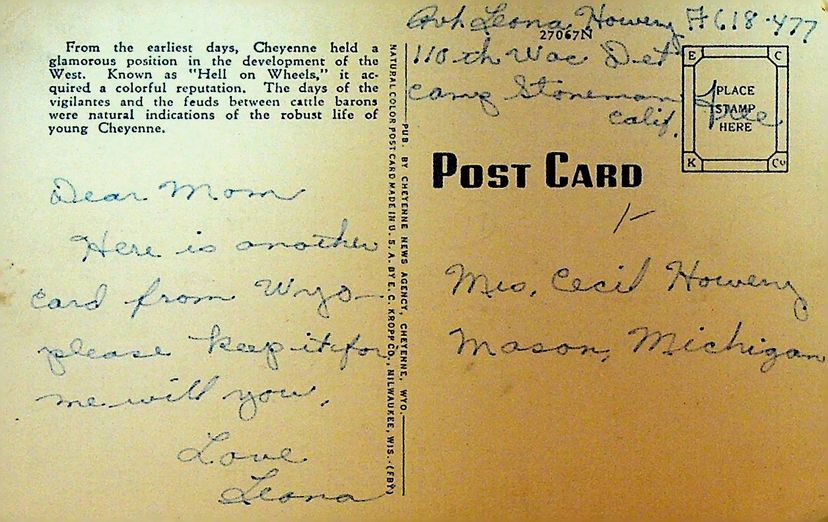 Pvt. Leona Howery A618-477
27067N
110th Wac Det
Camp Stoneman
Calif.
Free
From the earliest days, Cheyenne held a
glamorous position in the development of the
West. Known as "Hell on Wheels," it ac-
quired a colorful reputation. The days of the
vigilantes and the feuds between cattle barons
were natural indications of the robust life of
young Cheyenne.
Dear Mom
Here is another
card from Wyo
please keep it for
me will you.
Love
Leona
NATURAL COLOR POST CARD MADE IN U. S. A. BY E. C. KROPP CO., MILWAUKEE, WIS.-(FBY)
PUB. BY CHEYENNE NEWS AGENCY, CHEYENNE, WYO.
E C
PLACE
STAMP
HERE
K Co
POST CARD
Mrs. Cecil Howery
Mason, Michigan